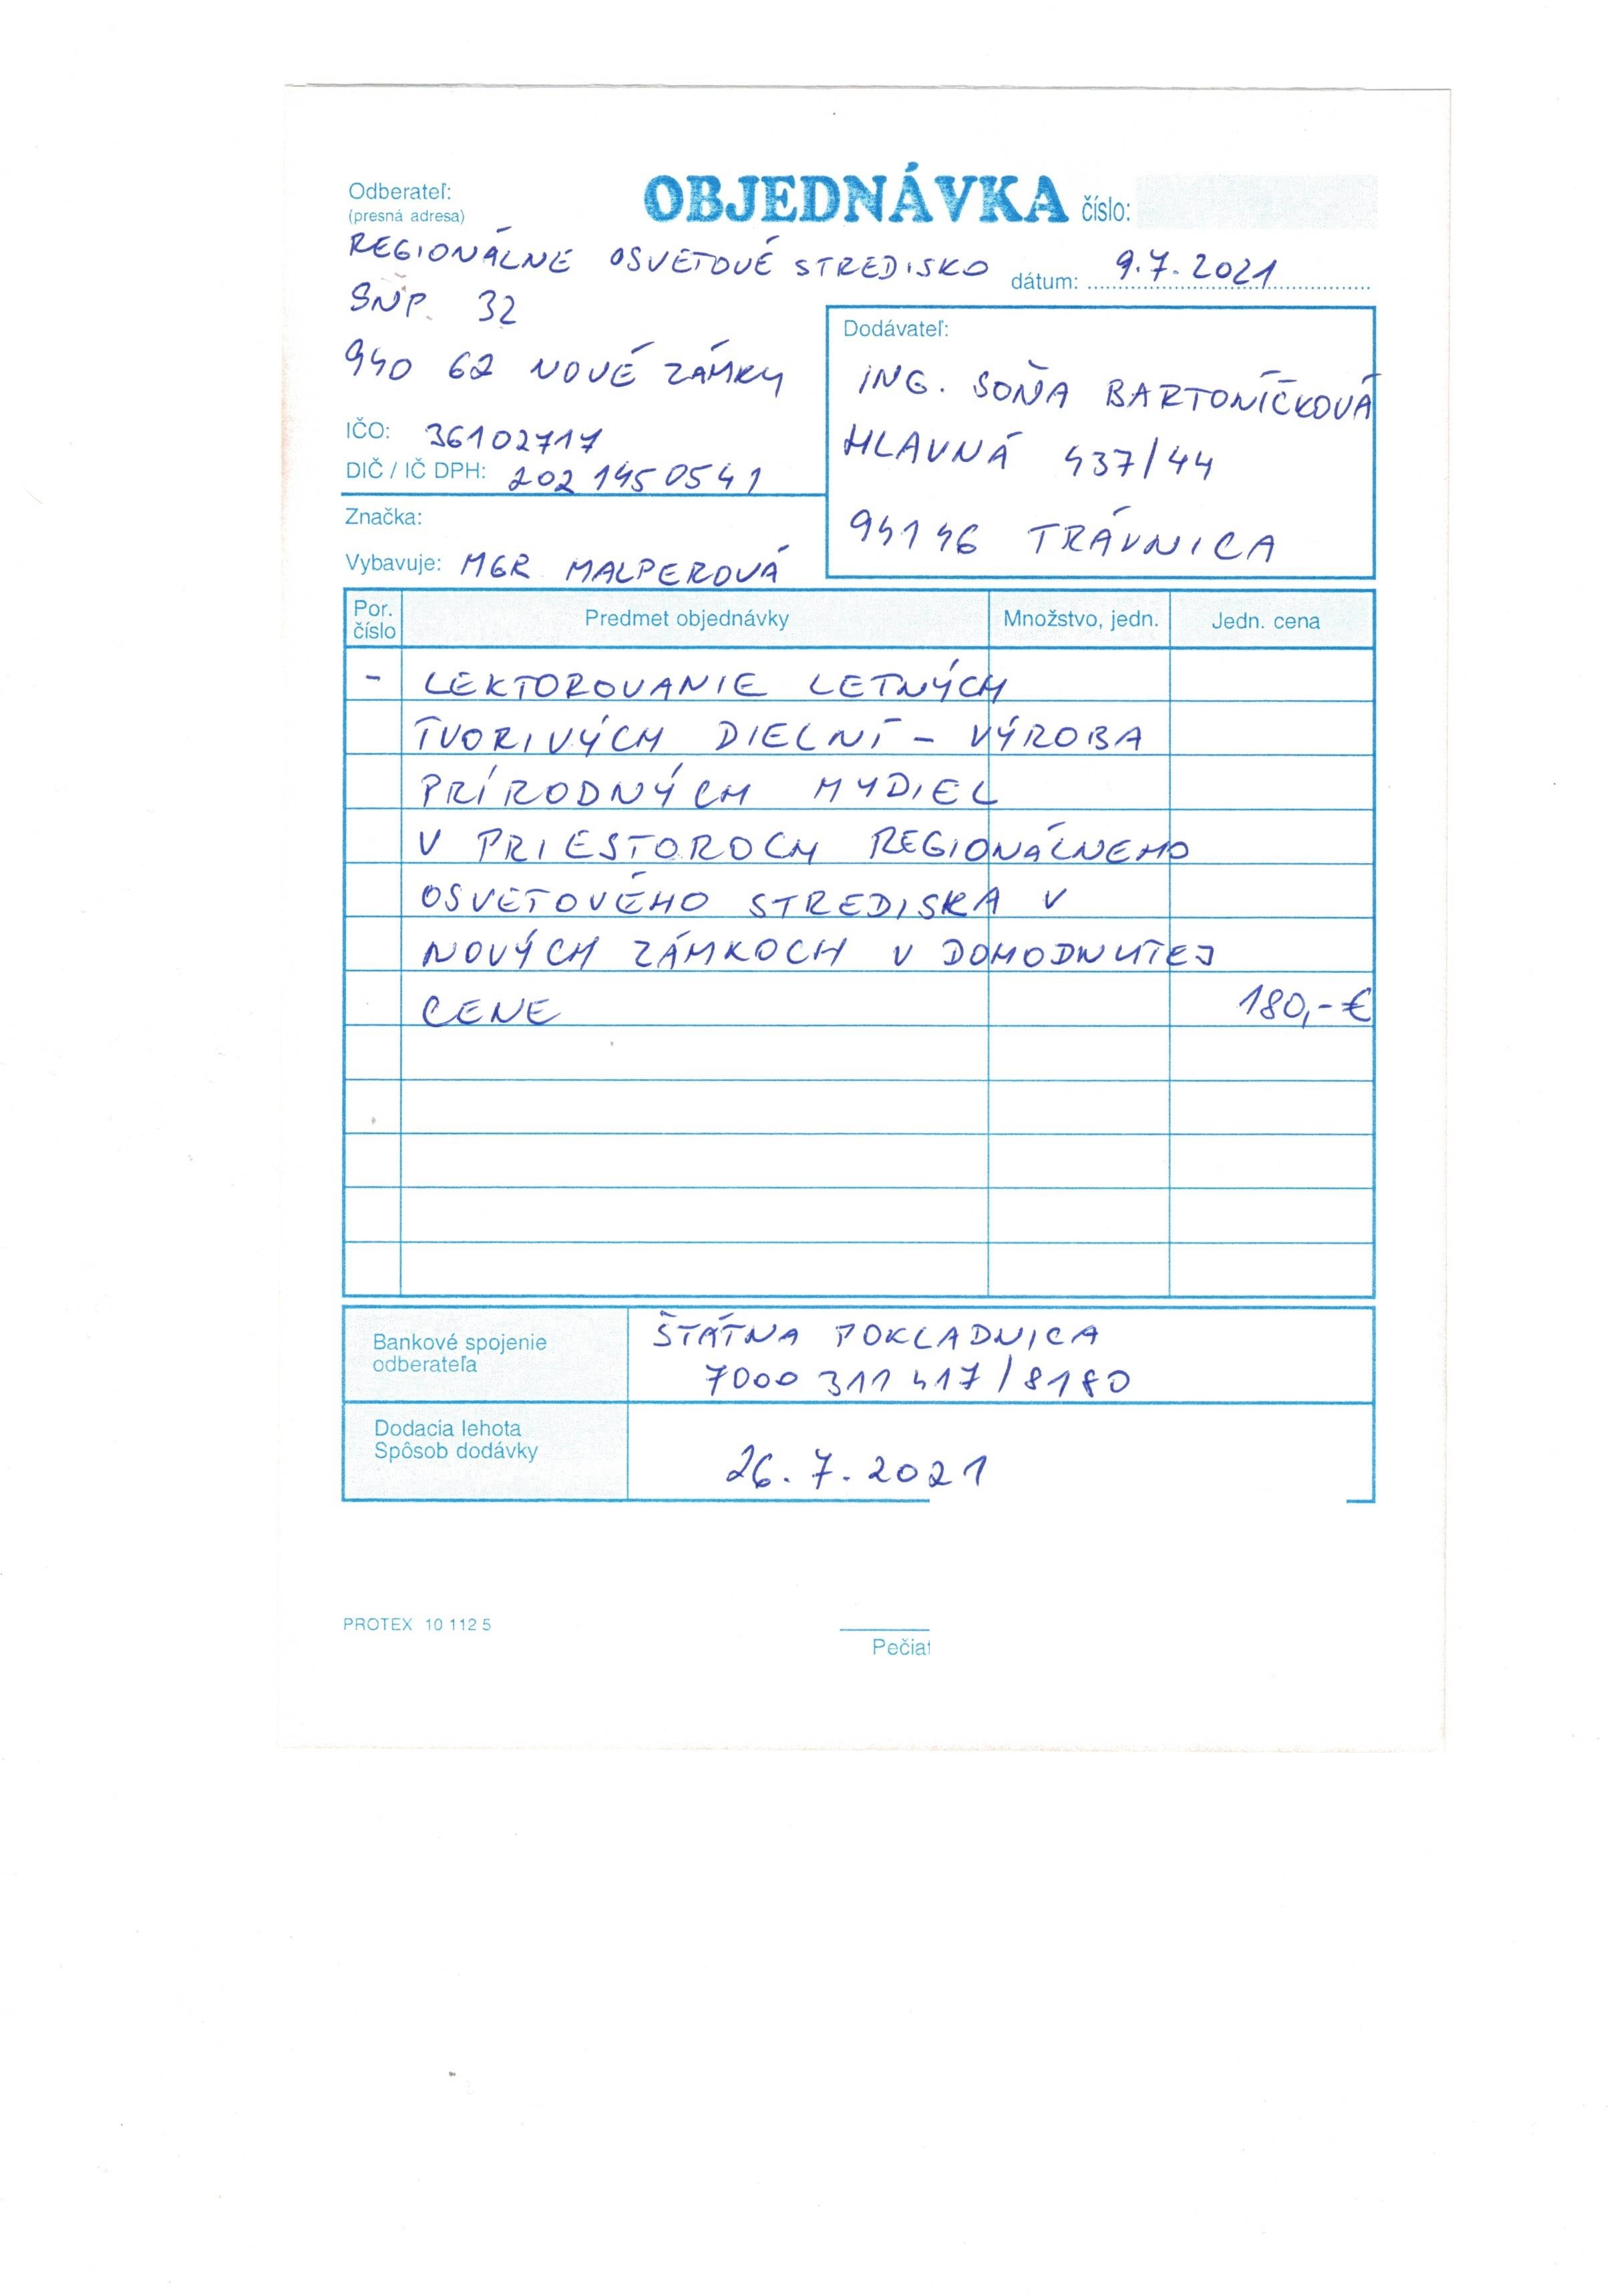 Odberateľ:
(presná adresa)
OBJEDNÁVKA číslo:
REGIONÁLNE OSVETOVÉ STREDISKO
dátum: 9.7.2021
SNP 32
940 62 NOVÉ ZÁMKY
IČO: 36102717
DIČ / IČ DPH: 202 145 0541
Značka:
Vybavuje: MGR MALPEROVÁ
Dodávateľ:
ING. SOŇA BARTONÍČKOVÁ
HLAVNÁ 437/44
94146 TRÁVNICA
Por. číslo Predmet objednávky Množstvo, jedn. Jedn. cena
- LEKTOROVANIE LETNÝCH
TVORIVÝCH DIELNÍ - VÝROBA
PRÍRODNÝCH MYDIEL
V PRIESTOROCH REGIONÁLNEHO
OSVETOVÉHO STREDISKA V
NOVÝCH ZÁMKOCH V DOHODNUTEJ
CENE 180,-€
Bankové spojenie
odberateľa
ŠTÁTNA POKLADNICA
7000 311 417/8180
Dodacia lehota
Spôsob dodávky
26.7.2021
PROTEX 10 112 5
Pečiat